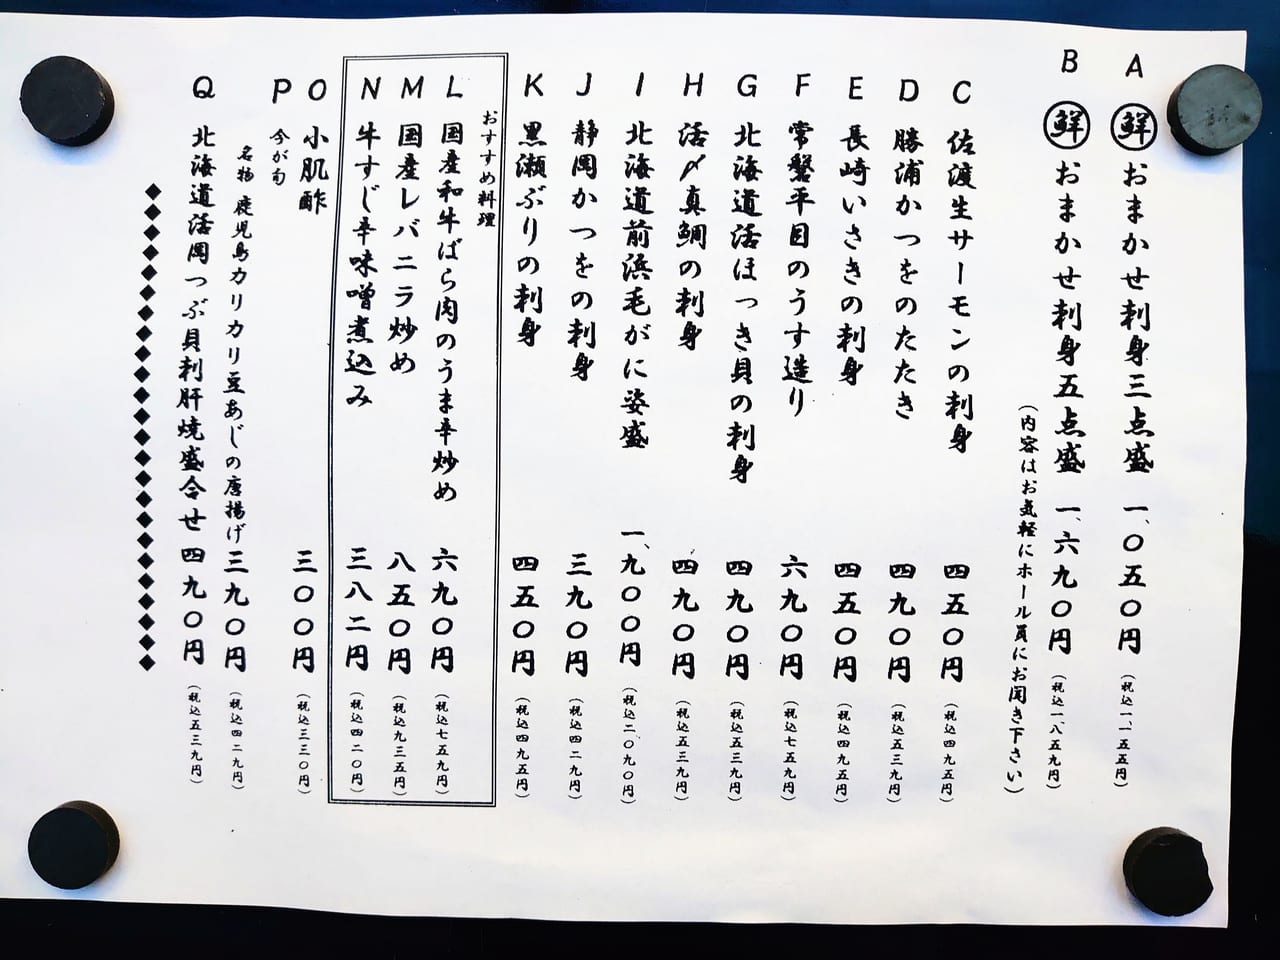 A 鮮 おまかせ刺身三点盛 一、〇五〇円 （税込一、一五五円）
B 鮮 おまかせ刺身五点盛 一、六九〇円 （税込一、八五九円）
（内容はお気軽にホール員にお聞き下さい）
C 佐渡生サーモンの刺身 四五〇円 （税込四九五円）
D 勝浦かつをのたたき 四九〇円 （税込五三九円）
E 長崎いさきの刺身 四五〇円 （税込四九五円）
F 常磐平目のうす造り 六九〇円 （税込七五九円）
G 北海道活ほっき貝の刺身 四九〇円 （税込五三九円）
H 活〆真鯛の刺身 四九〇円 （税込五三九円）
I 北海道前浜毛がに姿盛 一、九〇〇円 （税込二〇九〇円）
J 静岡かつをの刺身 三九〇円 （税込四二九円）
K 黒瀬ぶりの刺身 四五〇円 （税込四九五円）
おすすめ料理
L 国産和牛ばら肉のうま辛炒め 六九〇円 （税込七五九円）
M 国産レバニラ炒め 八五〇円 （税込九三五円）
N 牛すじ辛味噌煮込み 三八二円 （税込四二〇円）
O 小肌酢 三〇〇円 （税込三三〇円）
P 今が旬
名物 鹿児島カリカリ豆あじの唐揚げ 三九〇円 （税込四二九円）
Q 北海道活岡つぶ貝刺肝焼盛合せ 四九〇円 （税込五三九円）